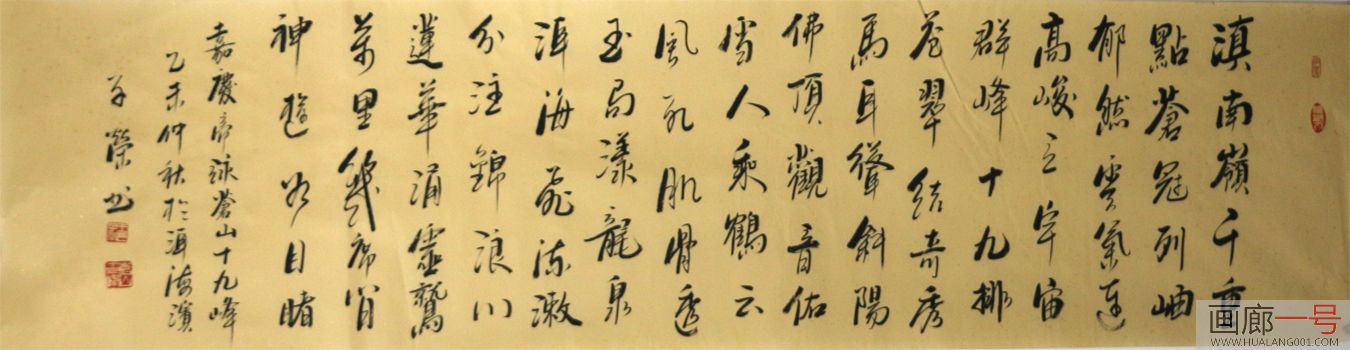 滇南嶺千重
點蒼冠列岫
郁然雲氣連
高峻立宇宙
群峰十九排
蒼翠結奇秀
馬耳聳斜陽
佛頂觀音佑
雪人乘鶴云
風孔肌骨透
玉局漾龍泉
洱海飛流漱
分注錦浪川
蓮華涌靈鷲
萬里幾席間
神遊如目睹
嘉慶帝詠蒼山十九峰
乙未仲秋於洱海濱
榮书
画廊一号
WWW.HUALANG001.COM